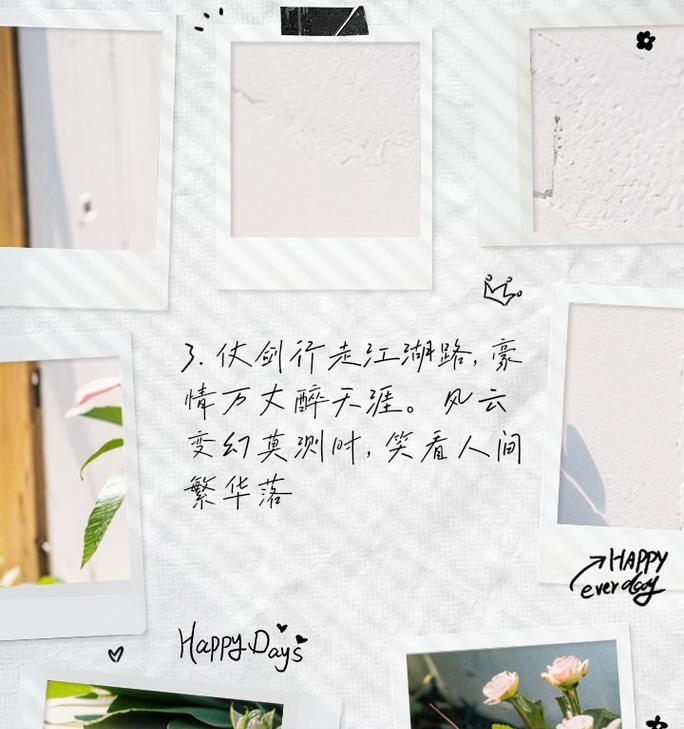 3. 仗剑行走江湖路, 豪
情万丈醉天涯。风云
变幻莫测时, 笑看人间
繁华落
HAPPY
everday
Happy Days